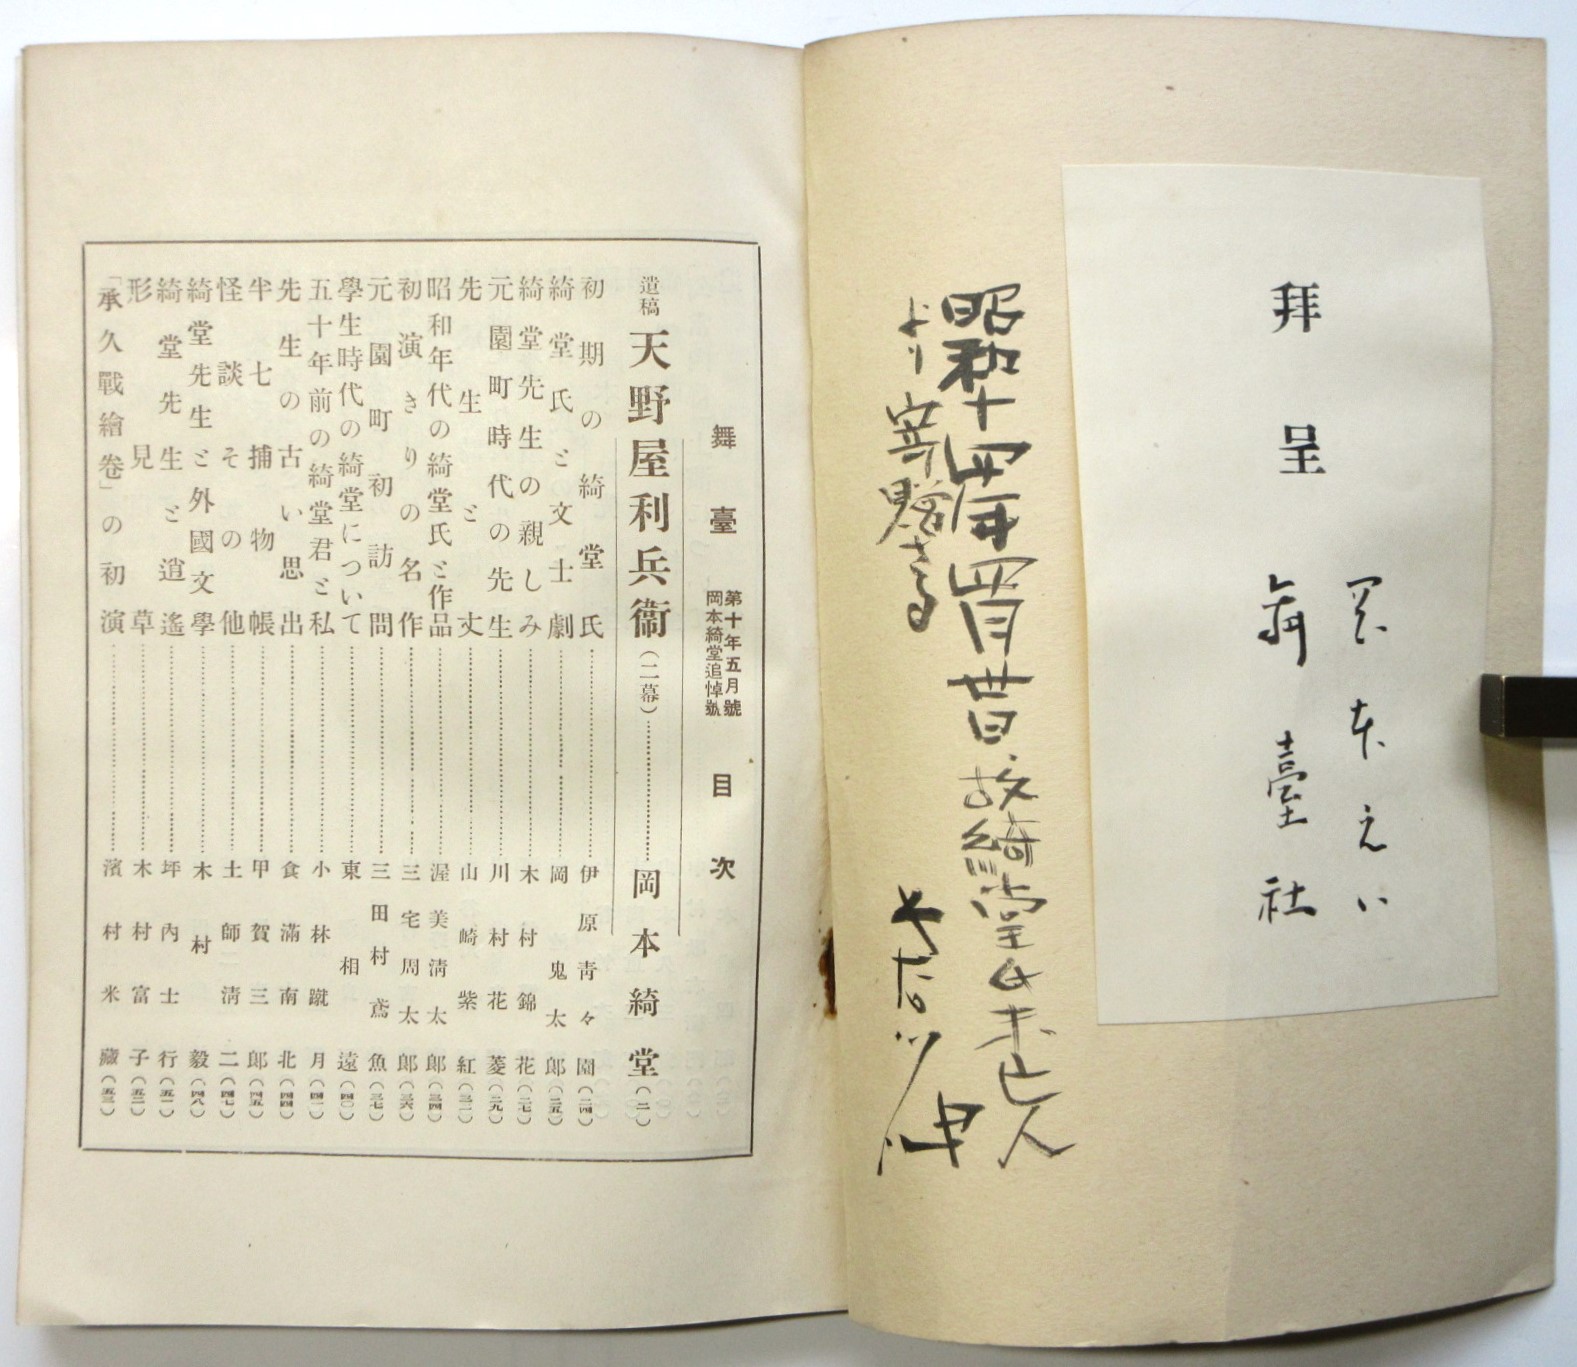 拜呈
岡本えい
舞臺社
昭和十四年四月廿日、故綺堂氏未亡人
より寄贈さる
舞臺 第十年五月號 岡本綺堂追悼號 目次
遺稿 天野屋利兵衞(二幕)……岡本綺堂(二)
初期の綺堂氏……伊原青々園(二四)
綺堂氏と文士劇……岡鬼太郎(二五)
綺堂先生の親しみ……木村錦花(二七)
元園町時代の先生……川村花菱(二九)
先生と丈……山崎紫紅(三一)
昭和年代の綺堂氏と作品……渥美淸太郎(三四)
初演きりの名作……三宅周太郎(三六)
元園町初訪問……三田村鳶魚(三七)
學生時代の綺堂について……東相遠(四〇)
五十年前の綺堂君と私……小林蹴月(四一)
先生の古い思出……食滿南北(四四)
半七捕物帳……甲賀三郎(四五)
怪談その他……土師淸二(四七)
綺堂先生と外國文學……木村毅(四八)
綺堂先生と逍遙……坪內士行(五一)
形見草……木村富子(五二)
「承久戰繪卷」の初演……濱村米藏(五三)